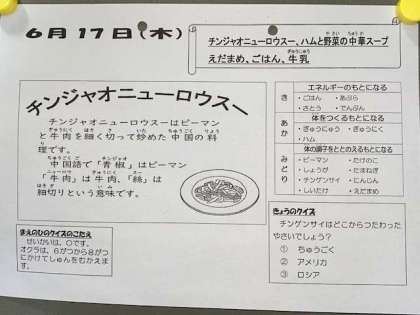 6月17日(木)
チンジャオニューロウスー、ハムと野菜の中華スープ
えだまめ、ごはん、牛乳
チンジャオニューロウスー
チンジャオニューロウスーはピーマン
と牛肉を細く切って炒めた中国の料
理です。
中国語で「青椒」はピーマン
「牛肉」は牛肉、「絲」は
細切りという意味です。
まえのひのクイズのこたえ
せいかいは、〇です。
オクラは、6がつから8がつ
にかけてしゅんをむかえま
す。
エネルギーのもとになる
き
・ごはん ・あぶら
・さとう ・でんぷん
体をつくるもとになる
あか
・ぎゅうにゅう ・ぎゅうにく
・ハム
体の調子をととのえるもとになる
みどり
・ピーマン ・たけのこ
・しょうが ・たまねぎ
・チンゲンサイ ・にんじん
・しいたけ ・えだまめ
きょうのクイズ
チンゲンサイはどこからつたわった
やさいでしょう?
① ちゅうごく
② アメリカ
③ ロシア